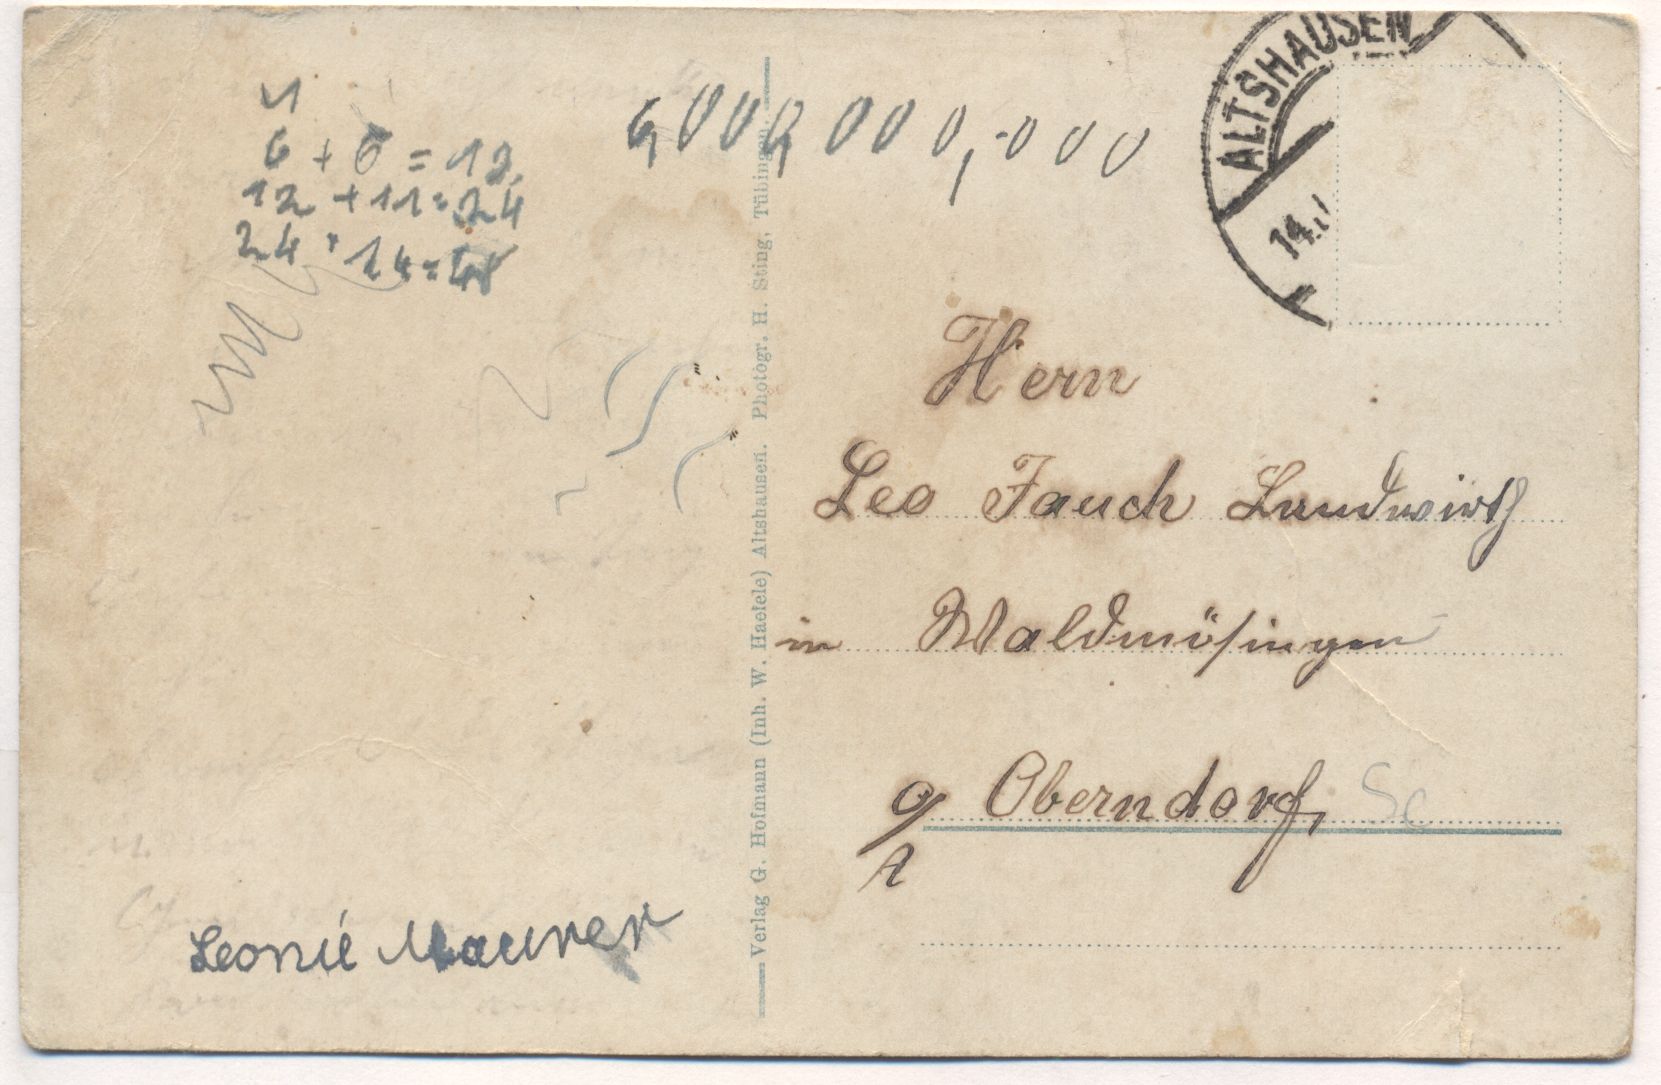 6 + 6 = 12
12 + 11 = 24
24 + 14 = 48
6,000,000,-000
ALTSHAUSEN
14.
Hern
Leo Fauch Landwirth
in Waldmösingen
a/
Oberndorf,
Sc
Leonie Maurer
Verlag G. Hofmann (Inh. W. Haefele) Altshausen. Photogr. H. Sting, Tübingen.